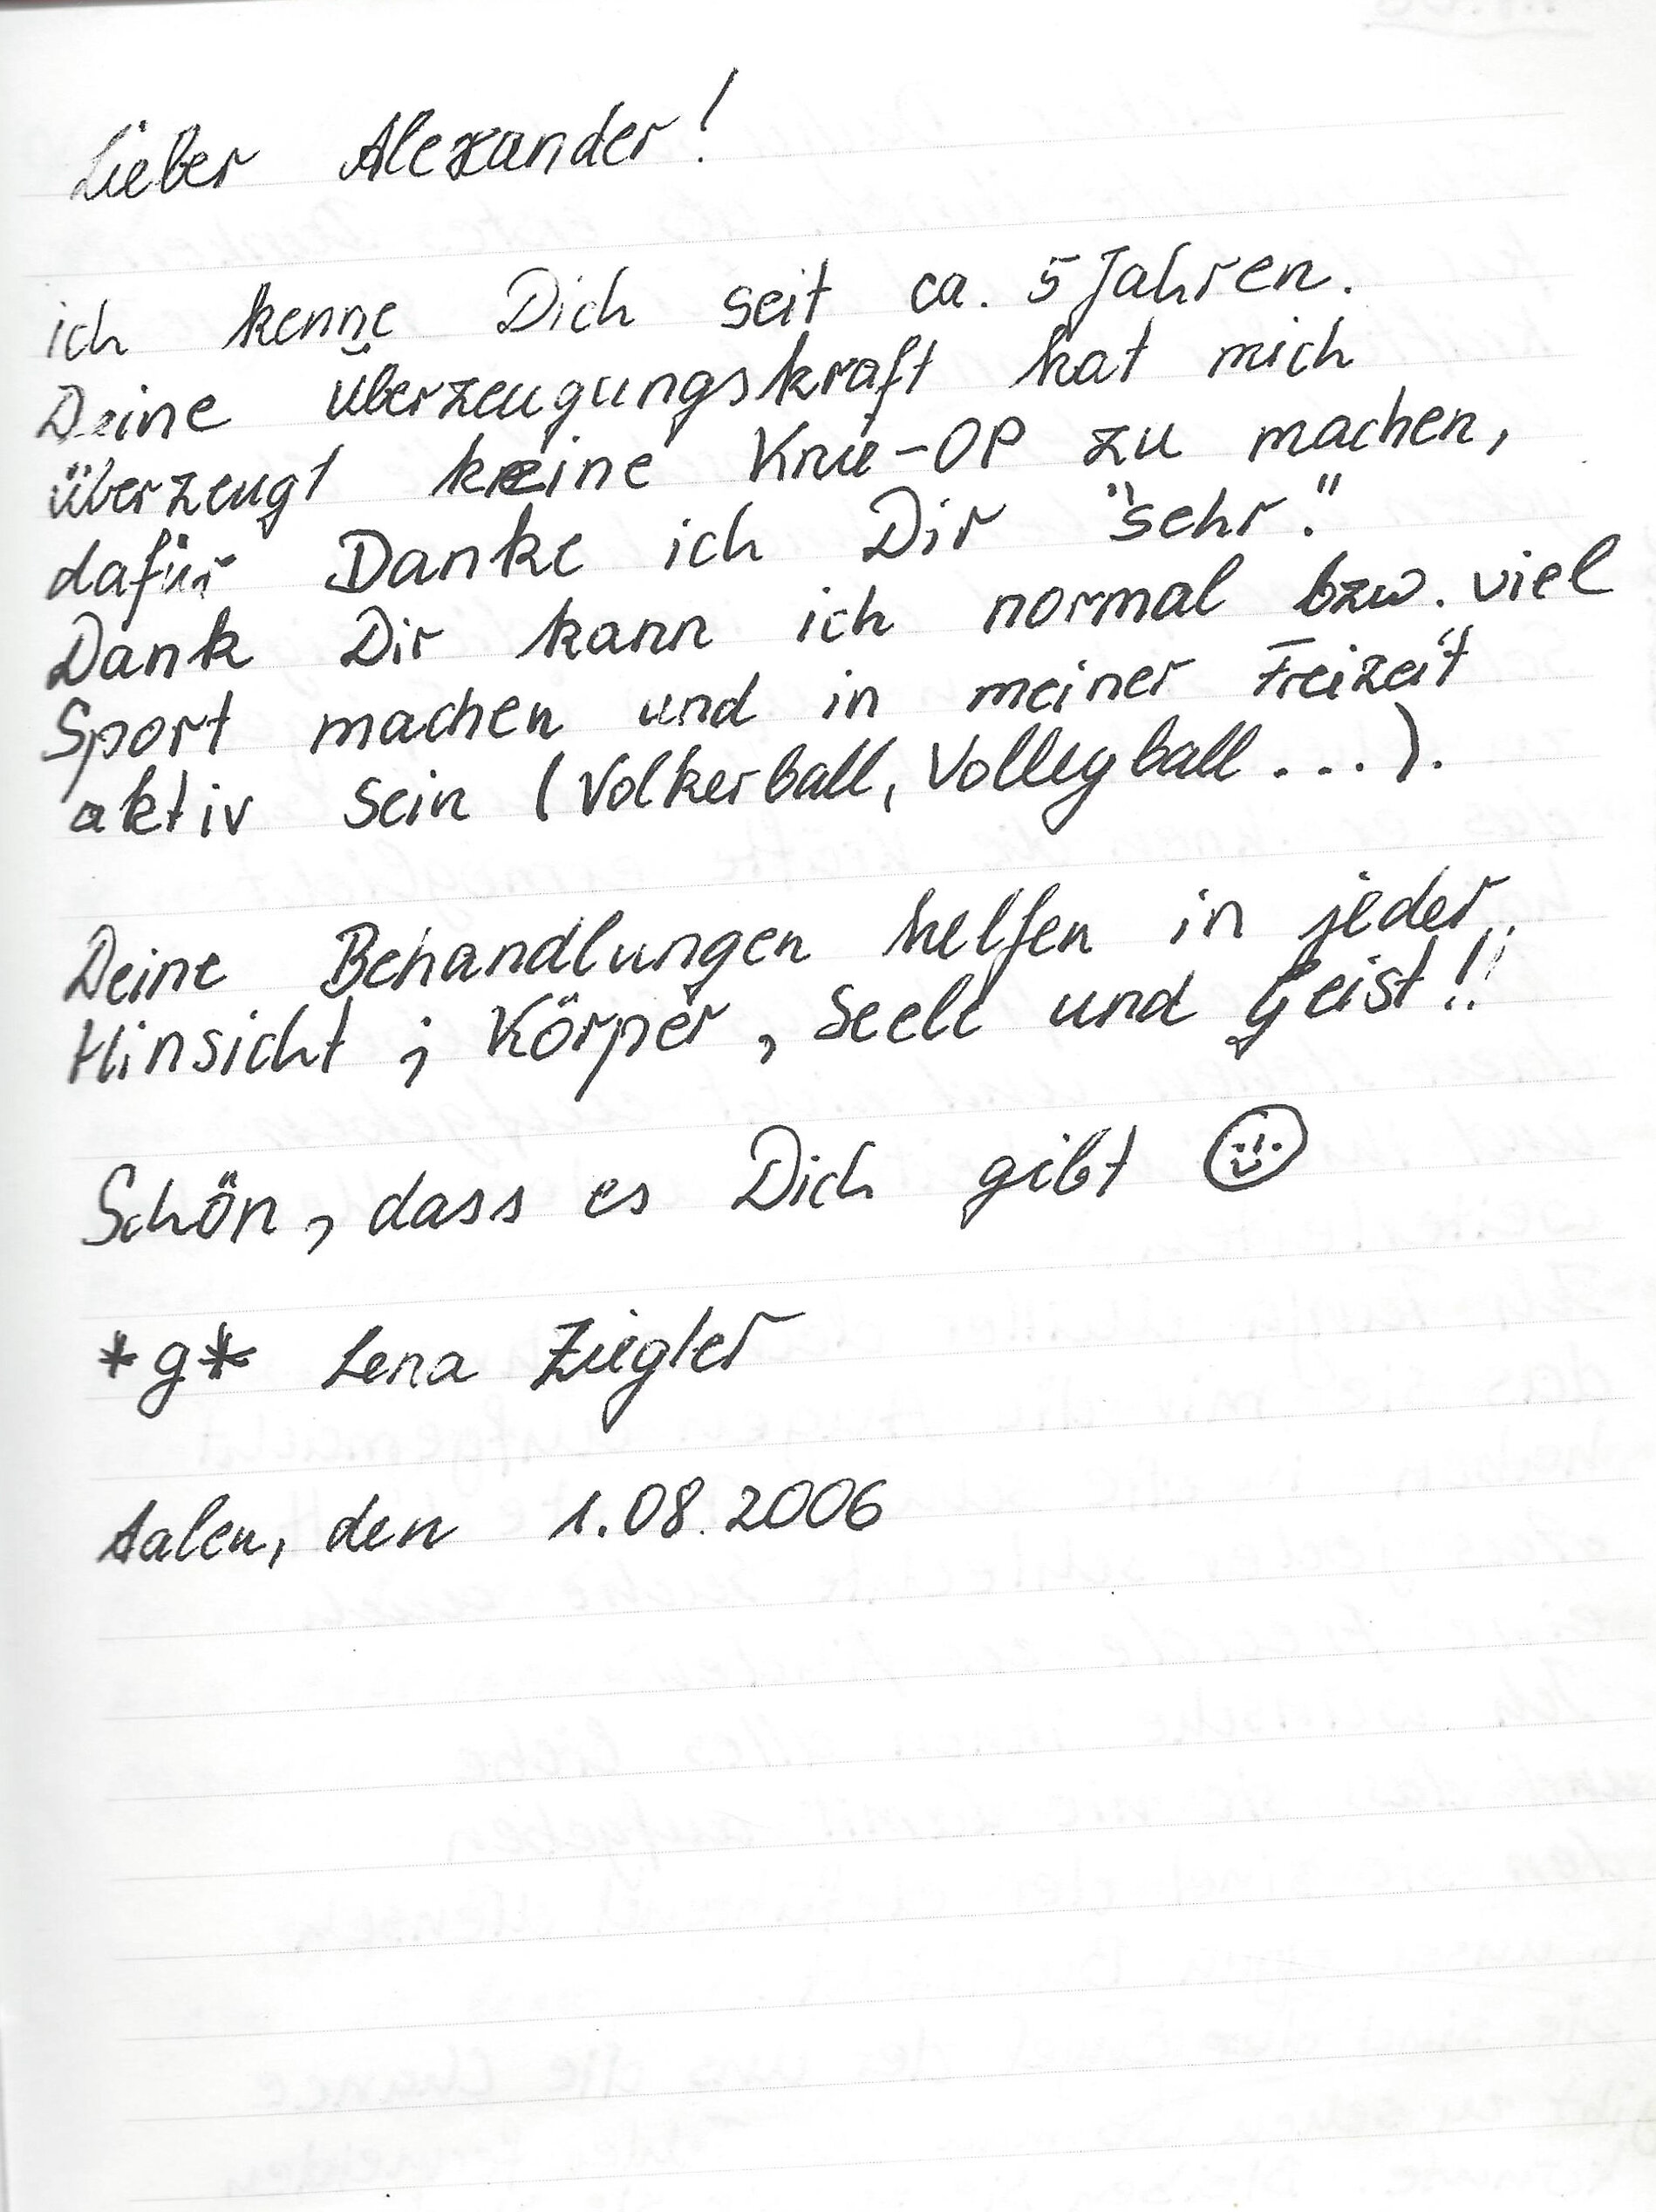 Lieber Alexander!
ich kenne Dich seit ca. 5 Jahren.
Deine Überzeugungskraft hat mich
überzeugt keine Knie-OP zu machen,
dafür Danke ich Dir "sehr."
Dank Dir kann ich normal bzw. viel
Sport machen und in meiner Freizeit
aktiv sein (Volkerball, Volleyball...).
Deine Behandlungen helfen in jeder
Hinsicht; Körper, Seele und Geist!!
Schön, dass es Dich gibt ☺
*g* Lena Ziegler
Aalen, den 1.08.2006